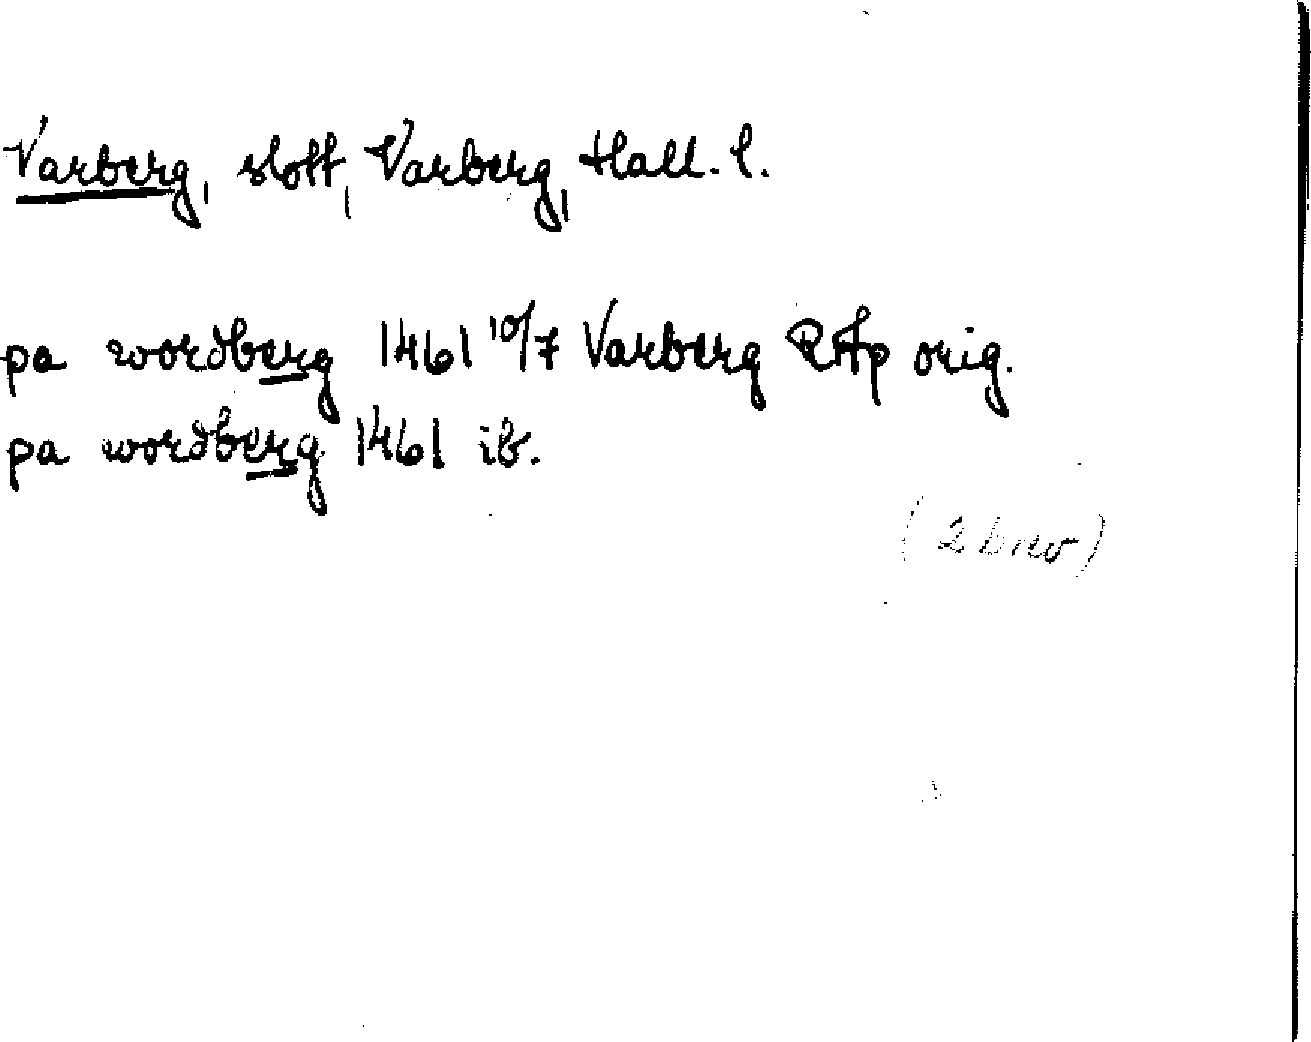 Varberg, slott, Varberg, Hall. l.
pa wordberg 1461 10/7 Varberg RAp orig.
pa wordberg 1461 ib.
(2 brev)